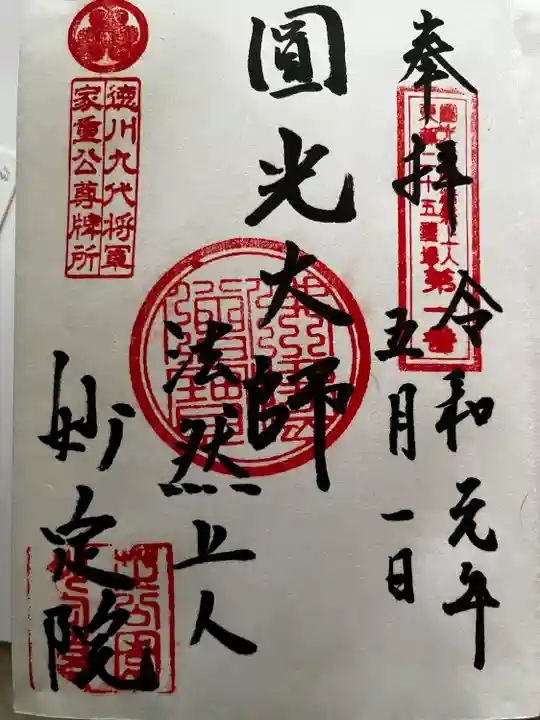 奉拝
令和元年
五月一日
圓光大師
法然上人
妙定院
徳川九代将軍
家重公尊牌所